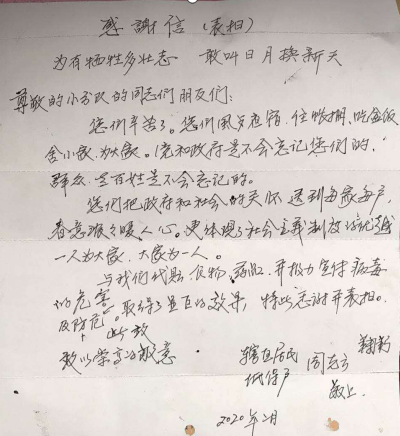 感謝信（表相）
为有牺牲多壮志 敢叫日月换新天
尊敬的小分队的同志们朋友们：
您们辛苦了。您们风歺夜宿，住帐棚，吃盒饭
舍小家，为大家。党和政府是不会忘记您们的，
群众、老百姓是不会忘记的。
您们把政府和社会的关怀送到每家每户，
春意暖暖暖人心。更体现了社会主义制度的优越
一人为大家，大家为一人。
与我们代购食物、药品，并极力宣传病毒
的危害
及防范。取得了显巨的效果，特此志谢并表相。
此致
致以崇高的敬意
辖区居民
低保户 周
敬上
2020年2月